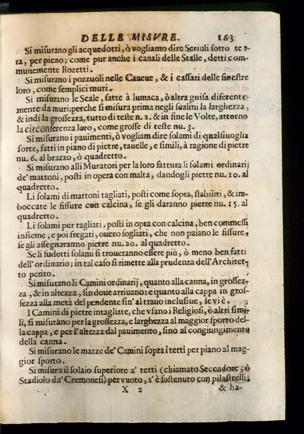 DELLE MISVRE. 163
Si misurano gli acquedotti, ò vogliamo dire Serioli sotto ter-
ra, per pieno; come pur anche i canali delle Stalle, detti co-
munemente Rozetti.
Si misurano i pozzuoli nelle Caneue, & i cassari delle finestre
loro, come semplici muri.
Si misurano le Scale, fatte à lumaca, ò altra guisa diferente-
mente da muri; perche si misura prima negli scalini la larghezza,
& indi la grossezza, tutto di teste n. 2. & in fine le Volte, attorno
la circonferenza loro, come grosse di teste nu. 3.
Si misurano i pauimenti, ò vogliam dire solami di qualsiuoglia
sorte, fatti in piano di pietre, tauelle, e simili, à ragione di pietre
nu. 6. al brazzo, ò quadretto.
Si misurano alli Muratori per la loro fattura li solami ordinarij
de' mattoni, posti in opera con malta, dandogli pietre nu. 10. al
quadretto.
Li solami di mattoni tagliati, posti come sopra, stabiliti, & im-
boccate le fissure con calcina, se gli daranno pietre nu. 15. al
quadretto.
Li solami pur tagliati, posti in opra con calcina, ben commessi
insieme, e poi fregati, ouero sogliati, che non paiano le fissure,
se gli assegnaranno pietre nu. 20. al quadretto.
Se li sudetti solami si troueranno essere più, ò meno ben fatti
dell'ordinario; in tal caso si rimette alla prudenza dell'Architet-
to perito.
Si misurano li Camini ordinarij, quanto alla canna, in grossez-
za, & in altezza, sin doue arriuano: e quanto alla cappa in gros-
sezza alla metà del pendente sin' al trauo inclusiue, se vi è.
I Camini di pietre intagliate, che vsano i Religiosi, ò altri simi-
li, si misurano per la grossezza, e larghezza al maggior sporto del-
la cappa, e per l'altezza dal pauimento, sino al congiungimento
della canna.
Si misurano le mazze de' Camini sopra i tetti per piano al mag-
gior sporto.
Si misura il solaio superiore a' tetti (chiamato Seccadore; ò
Stadiolo da' Cremonesi) per vuoto, s'è sostenuto con pilastrelli,
X 2 & ha-